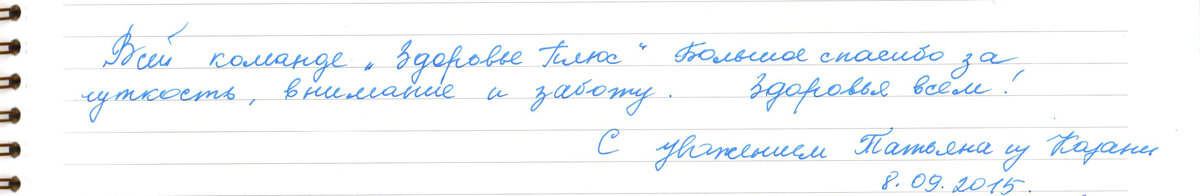 Всей команде „Здоровье Плюс" Большое спасибо за
чуткость, внимание и заботу. Здоровья всем!
С уважением Татьяна из Казани
8.09.2015.